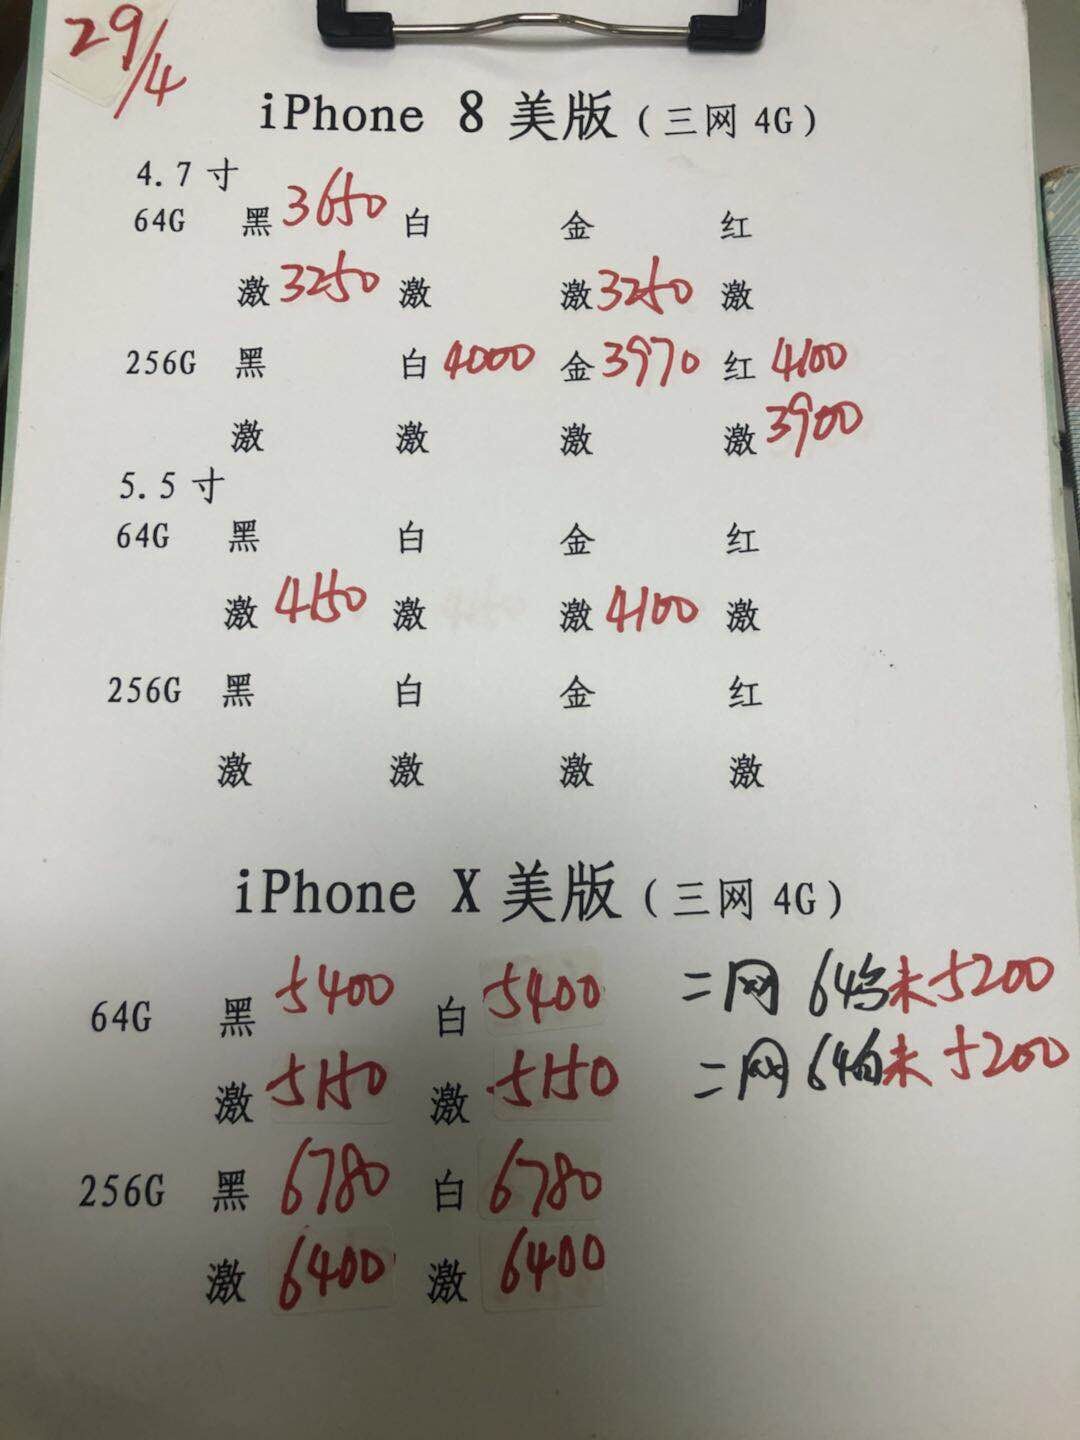 29/4
iPhone 8 美版（三网 4G）
4.7 寸
64G 黑 3650 白 金 红
激 3250 激 激 3250 激
256G 黑 白 4000 金 3970 红 4100
激 激 激 激 3900
5.5 寸
64G 黑 白 金 红
激 4150 激 激 4100 激
256G 黑 白 金 红
激 激 激 激
iPhone X 美版（三网 4G）
64G 黑 5400 白 5400 二网 64 未 5200
激 5150 激 5150 二网 64白未 5200
256G 黑 6780 白 6780
激 6400 激 6400